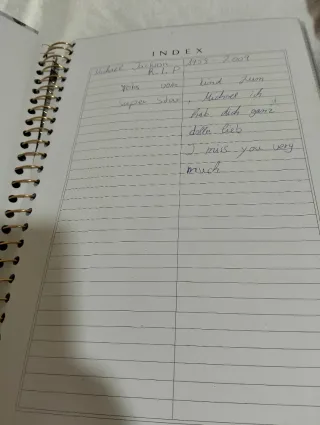 INDEX
Michael Jackson 1958 2009
R.I.P
Vom kind zum
super star, Michael ich
hab dich ganz
dolle lieb
I miss you very
much